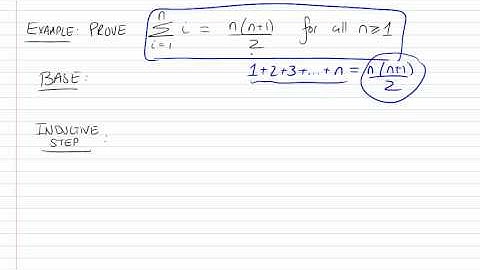 EXAMPLE: PROVE $\sum_{i=1}^{n} i = \frac{n(n+1)}{2}$ for all n ≥ 1
1+2+3+...+n = $\frac{n(n+1)}{2}$
BASE:
INDUCTIVE
STEP :